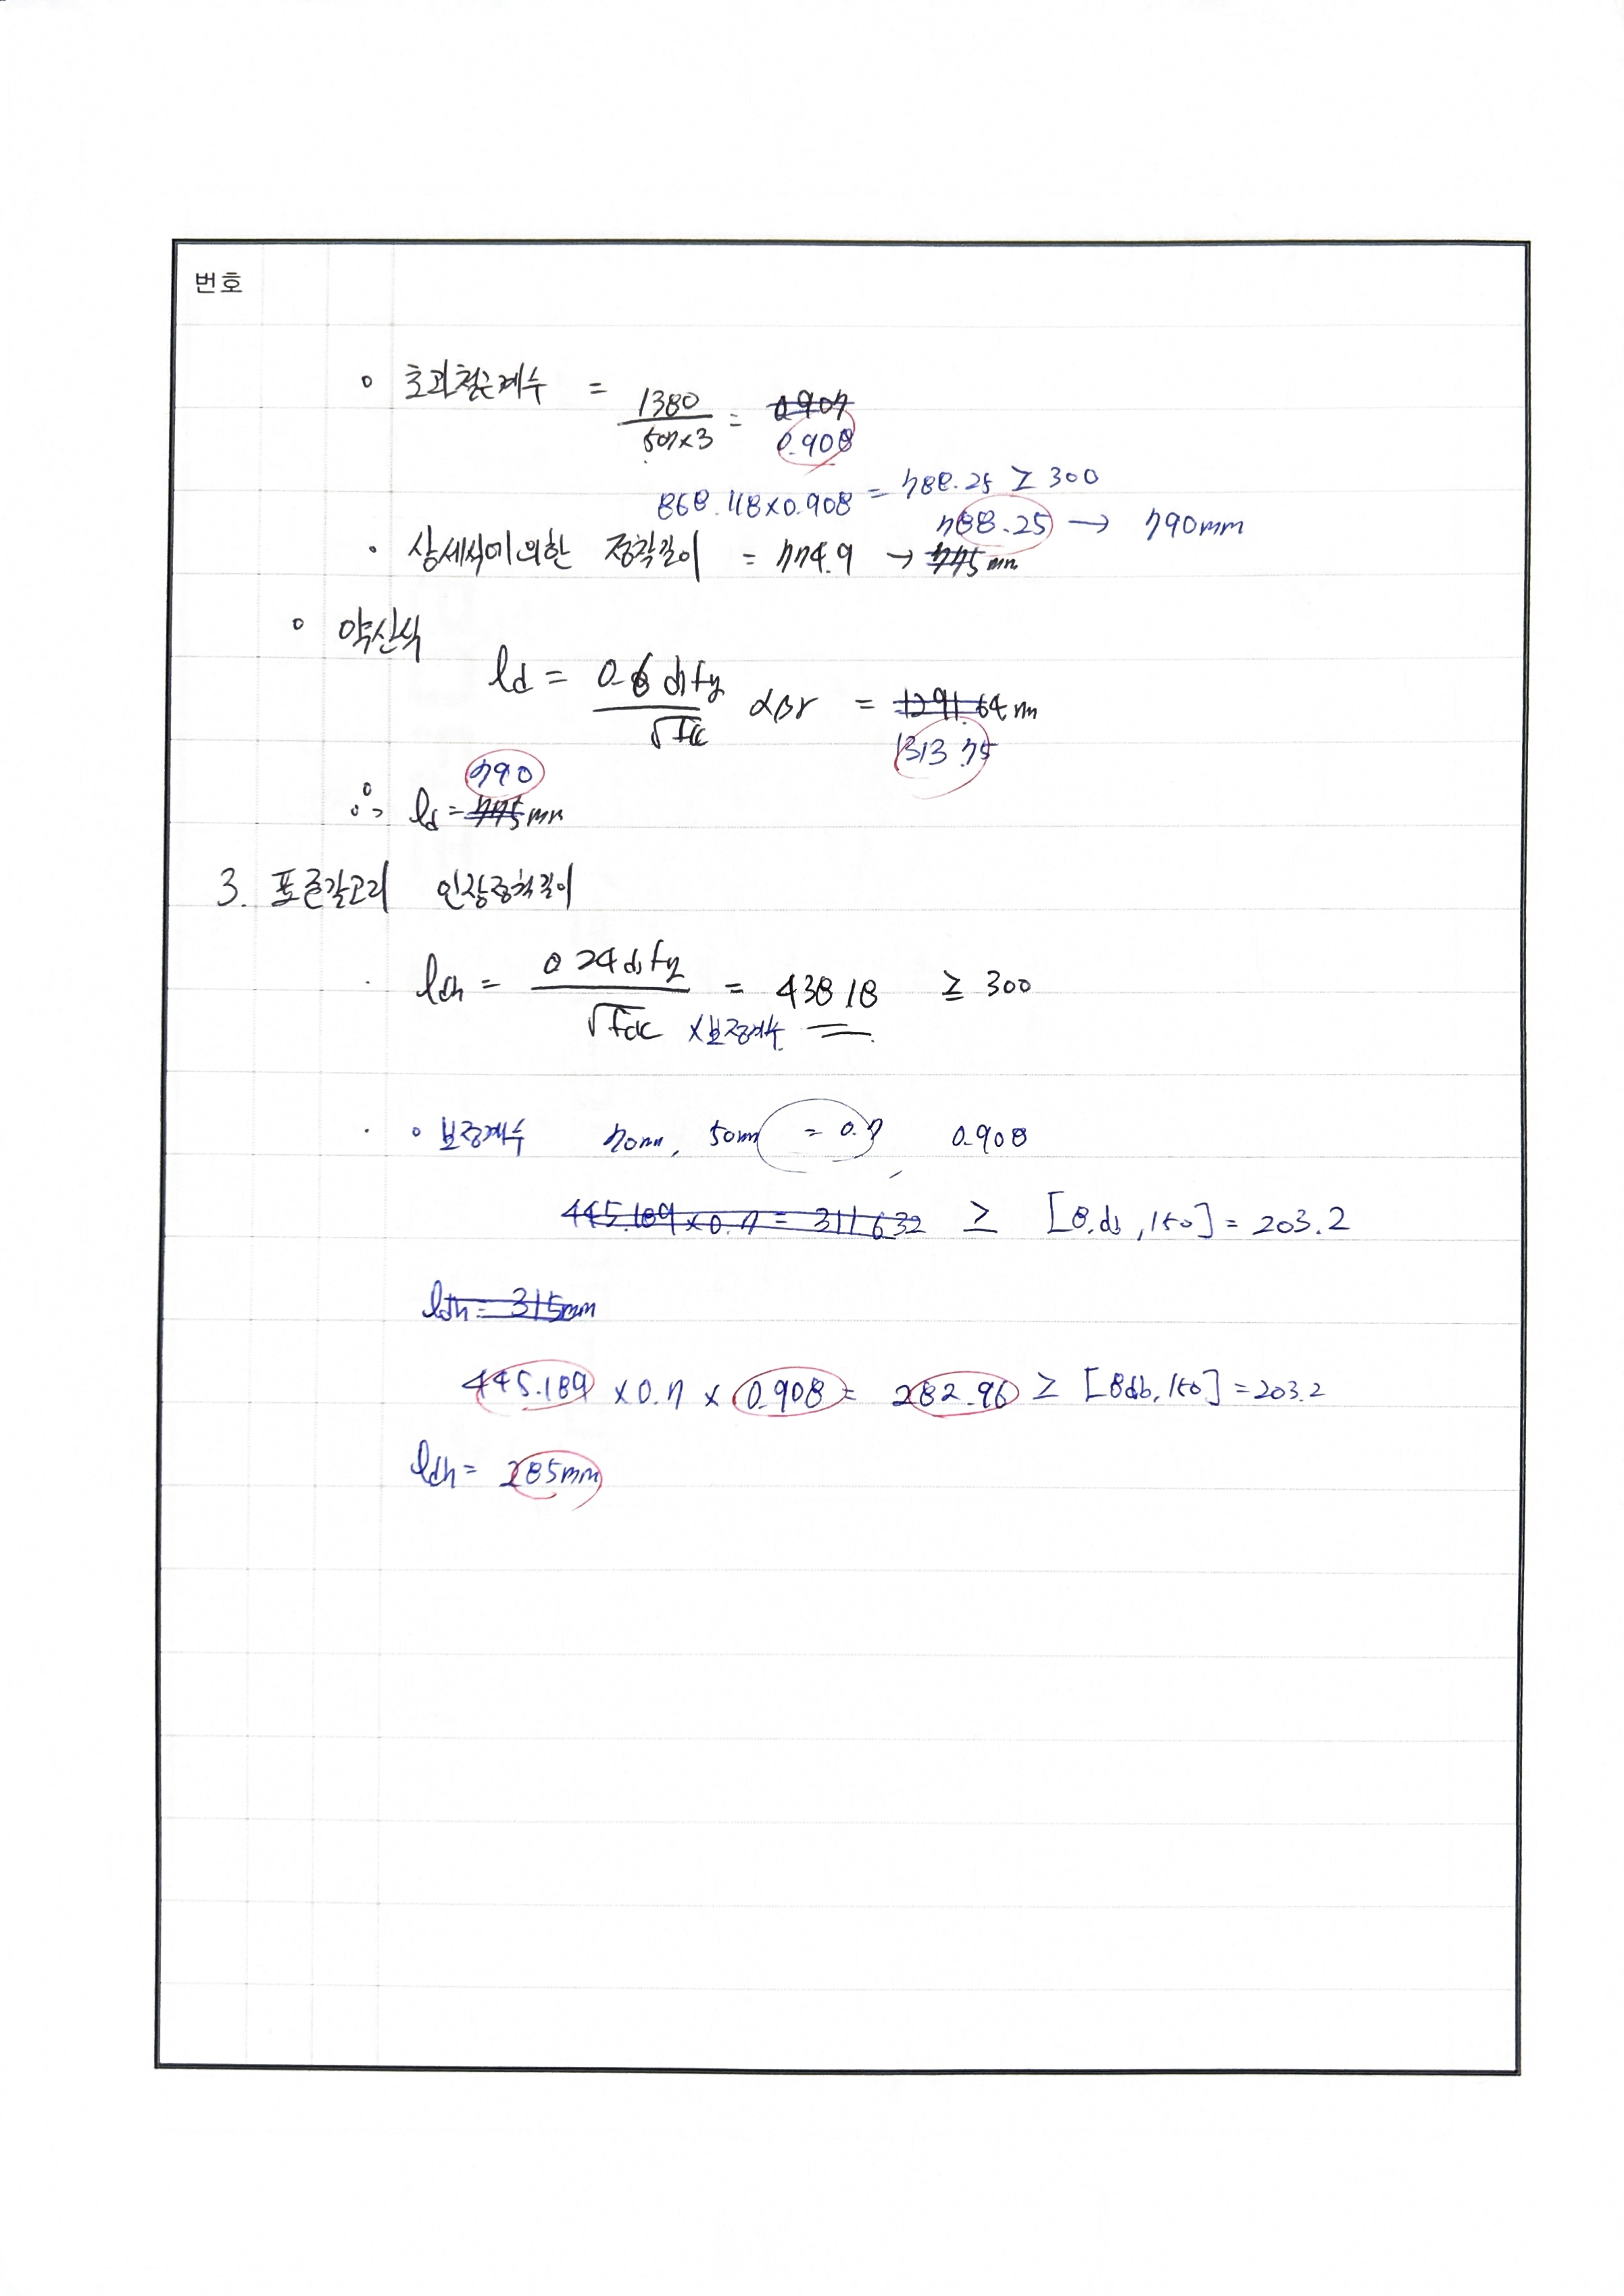 번호
○ 초과철근계수 = 1380 / 507×3 = 0.907
0.908
868.118×0.908 = 788.25 ≥ 300
788.25 → 790mm
· 상세식에 의한 정착길이 = 774.9 → 775mm
○ 약산식
ld = 0.6 db fy / √fck αβγ = 1291.64mm
1313.75
790
∴ ld = 775mm
3. 표준갈고리 인장정착길이
· ldh = 0.24 db fy / √fck = 438.18 ≥ 300
×보정계수
· ○ 보정계수 70mm, 50mm = 0.7 0.908
445.189×0.7 = 311.632 ≥ [8.db, 150] = 203.2
ldh = 315mm
445.189 × 0.7 × 0.908 = 282.96 ≥ [8db, 150] = 203.2
ldh = 285mm